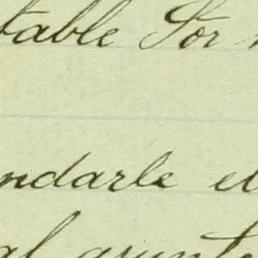 table Sor
ndarle el
al asunto